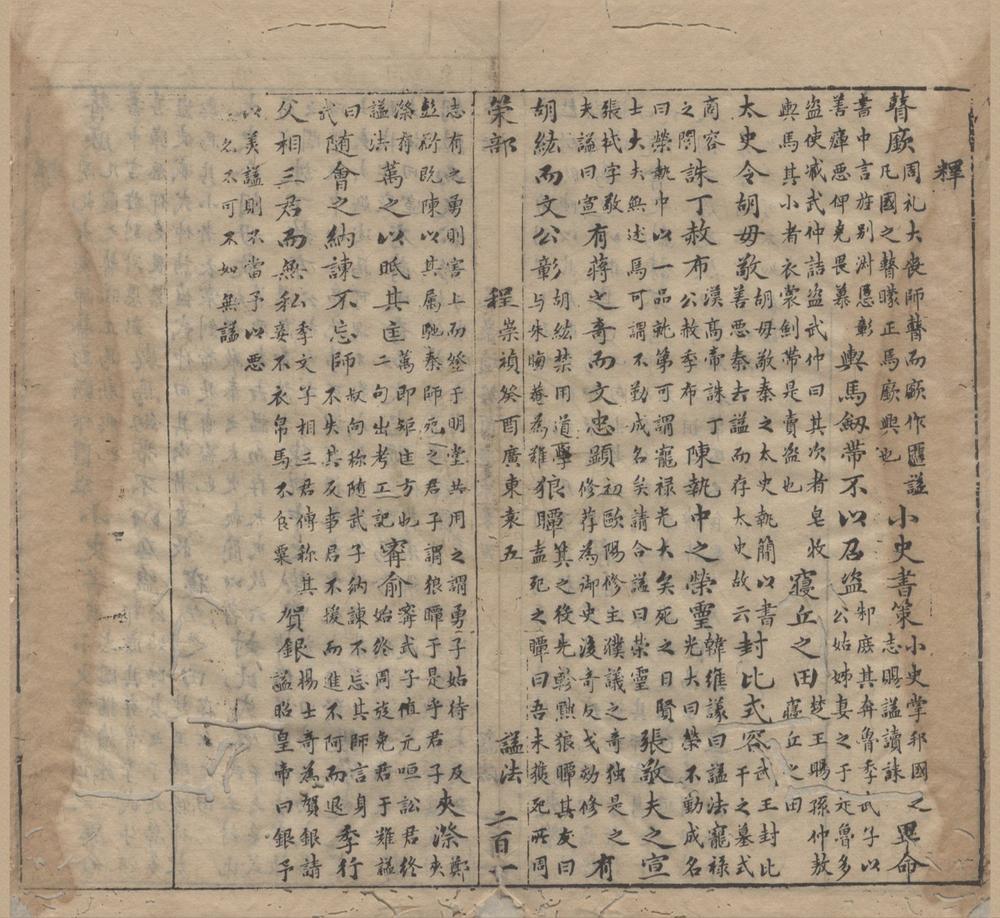 釋
瞽廞
周礼大丧師瞽而廞作匶謚
凡國之瞽矇正焉廞興也
小史書策
小史掌邦國之
志賜謚讀誄
異命
書中言旌别淑慝彰
善癉悪俾克畏慕
輿馬劒帶不以召盗
邾庶其奔魯季武子以
公姑姊妻之于是魯多
盗使臧武仲詰盗武仲曰其次者皂牧
輿馬其小者衣裳劍帶是賣盗也
寢丘之田
楚王賜孫仲敖
寢丘之田
太史令胡毋敬
胡毋敬秦之太史執簡以書
善悪秦去謚而存太史故云
封比式容
武王封比
干之墓式
商容
之閭
誅丁赦布
漢高帝誅丁
公赦季布
陳執中之榮靈
韓維議曰謚法寵禄
光大曰榮不勤成名
曰榮執中以一品就第可謂寵禄光大矣死之日賢
士大夫無述焉可謂不勤成名矣請合謚曰榮靈
張敬夫之宣
張栻字敬
夫謚曰宣
有蒋之奇而文忠顕
初歐陽修主濮議之奇独是之
修荐為御史後奇反戈劾修
有
胡紘而文公彰
胡紘禁用道學
与朱晦菴為難
狼瞫
箕之役先軫黜狼瞫其友曰
盍死之瞫曰吾未獲死所周
策部 程 崇禎癸酉廣東袁五 謚法 二百一
志有之勇則害上而登于明堂共用之謂勇子姑待及
彭衙既陳以其属馳秦師死之君子謂狼瞫于是乎君子
夾漈
鄭
夾
漈有
謚法
萬之以眡其匡
萬即矩匡方也
二句出考工記
甯俞
甯武子值元咺訟君終
始終周旋免君于難謚
曰
武
随會之納諫不忘師
叔向称随武子納諫不忘其師言身
不失其友事君不援而進不阿而退
季行
父相三君而無私
季文子相三君傳称其
妾不衣帛馬不食粟
賀銀
楊士奇為賀銀請
謚昭皇帝曰銀予
以美謚則不當予以悪
名不可不如無謚